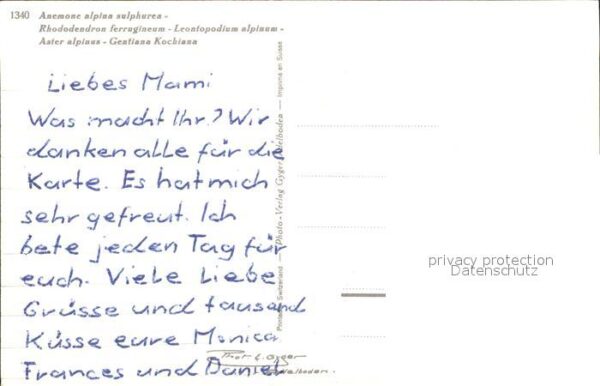 1340 Anemone alpina sulphurea -
Rhododendron ferrugineum - Leontopodium alpinum -
Aster alpinus - Gentiana Kochiana
Liebes Mami
Was macht Ihr? Wir
danken alle für die
Karte. Es hat mich
sehr gefreut. Ich
bete jeden Tag für
euch. Viele Liebe
Grüsse und tausend
Küsse eure Monica
Frances und Daniel
Photo-Verlag Gyger, Adelboden — Imprimé en Suisse
Switzerland
Phot. E. Gyger
Adelboden
privacy protection
Datenschutz